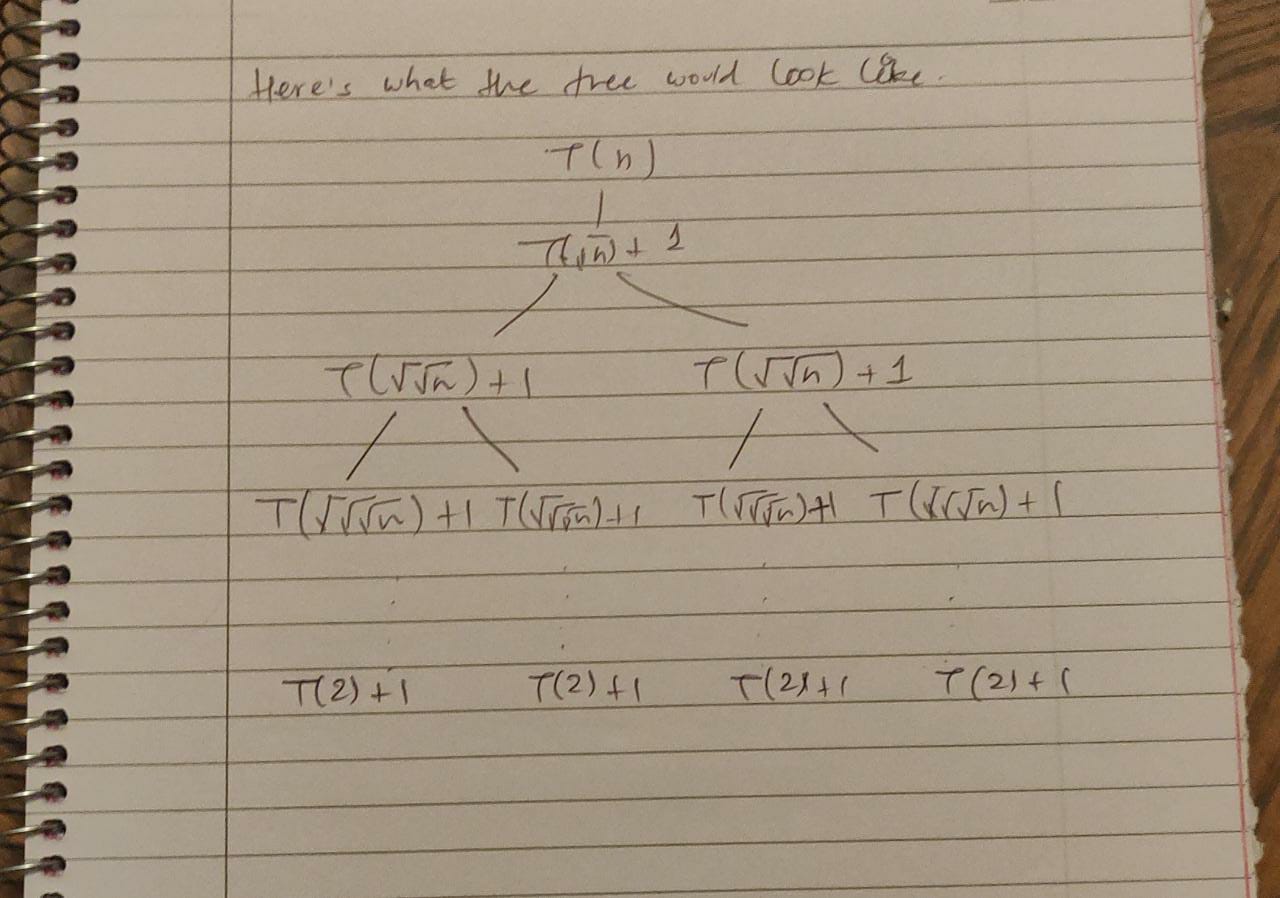 Here's what the tree would look like.
T(n)
T(√n) + 1
T(√√n) + 1 T(√√n) + 1
T(√√√n) + 1 T(√√√n) + 1 T(√√√n) + 1 T(√√√n) + 1
T(2) + 1 T(2) + 1 T(2) + 1 T(2) + 1